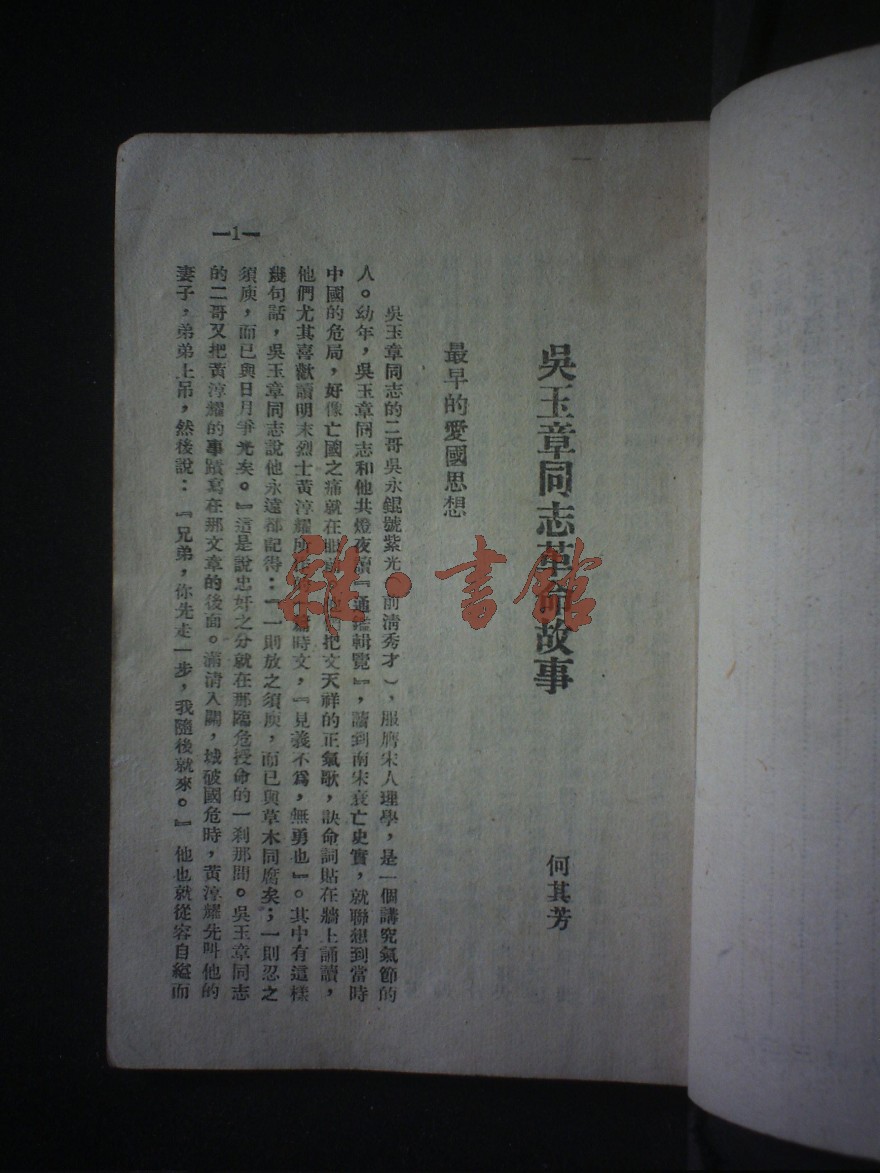 吳玉章同志革命故事
何其芳
最早的愛國思想
吳玉章同志的二哥吳永錕號紫光（前清秀才），服膺宋人理學，是一個講究氣節的
人。幼年，吳玉章同志和他共燈夜讀『通鑑輯覽』，讀到南宋衰亡史實，就聯想到當時
中國的危局，好像亡國之痛就在眼前。他們把文天祥的正氣歌，訣命詞貼在牆上誦讀，
他們尤其喜歡讀明末烈士黃淳耀所作的一篇時文，『見義不爲，無勇也』。其中有這樣
幾句話，吳玉章同志說他永遠都記得：『一則放之須庾，而已與草木同腐矣；一則忍之
須庾，而已與日月爭光矣。』這是說忠奸之分就在那臨危授命的一刹那間。吳玉章同志
的二哥又把黃淳耀的事蹟寫在那文章的後面。滿清入關，城破國危時，黃淳耀先叫他的
妻子，弟弟上吊，然後說：『兄弟，你先走一步，我隨後就來。』他也就從容自縊而
—1—
雜·書館